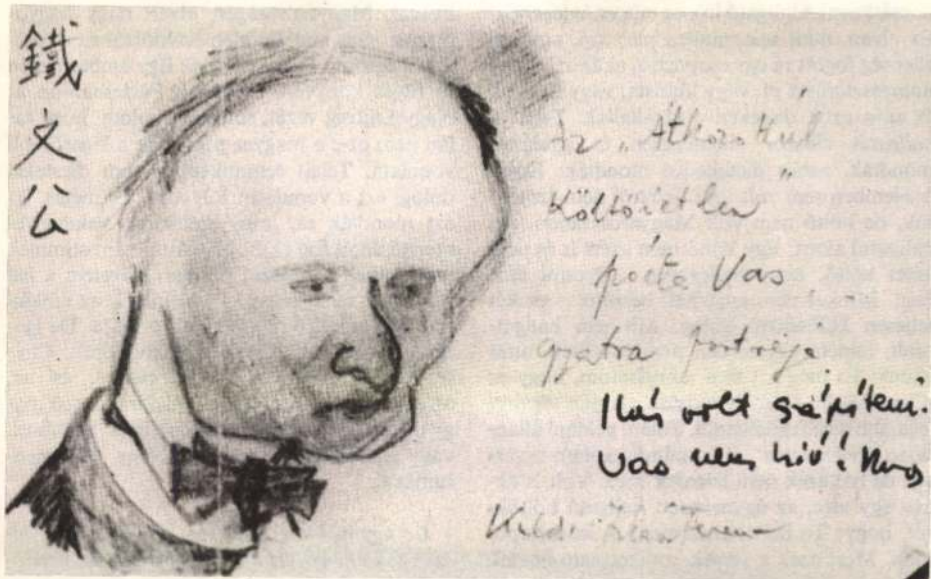 鐵文公
Az „Átkozottul
Költőietlen”
poéta Vas,
gyatra portréja
Kár volt szépíteni.
Vas nem hiú! Vas